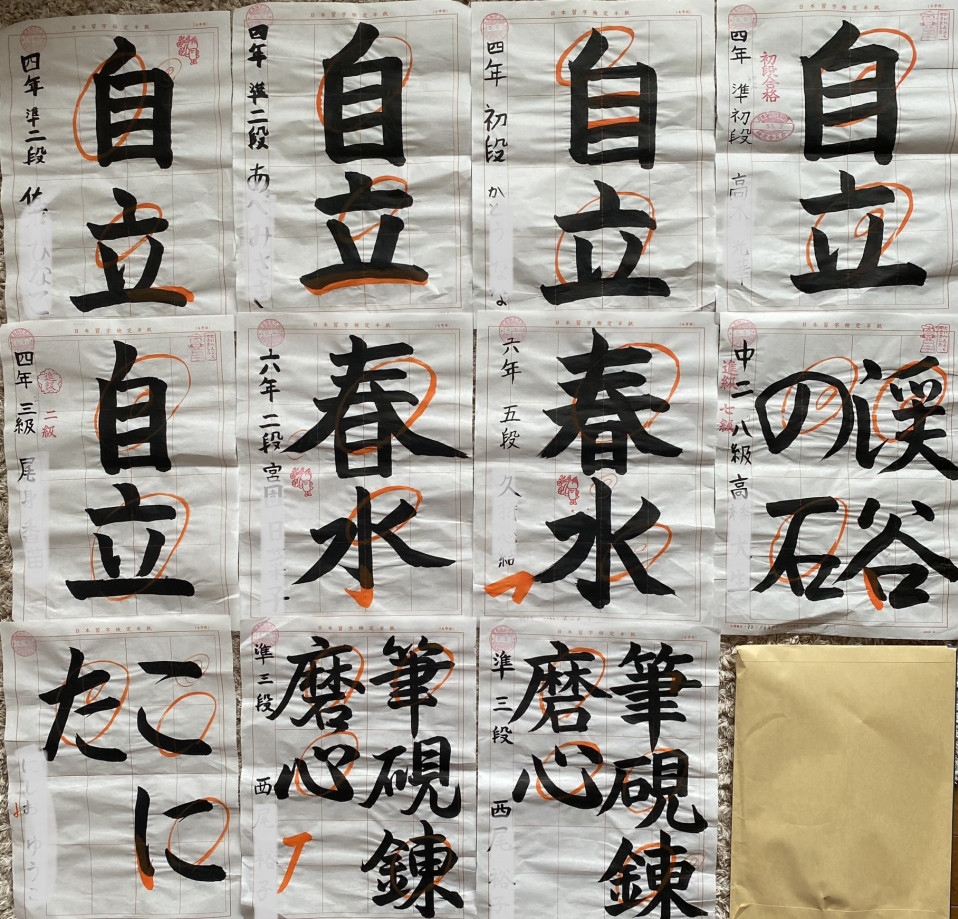 日本習字検定半紙
自立
四年 準二段
日本習字検定半紙
自立
四年 準二段 あ
日本習字検定半紙
自立
四年 初段 かと
日本習字検定半紙
自立
四年 準初段 高
初段合格
日本習字検定半紙
自立
四年 三級 尾
進級 二級
日本習字検定半紙
春水
六年 二段 宮田
日本習字検定半紙
春水
六年 五段 久
日本習字検定半紙
渓谷
の石
中二 八級 高
進級 七級
日本習字検定半紙
こに
た
日本習字検定半紙
筆硯錬
磨心
準三段 西
日本習字検定半紙
筆硯錬
磨心
準三段 西